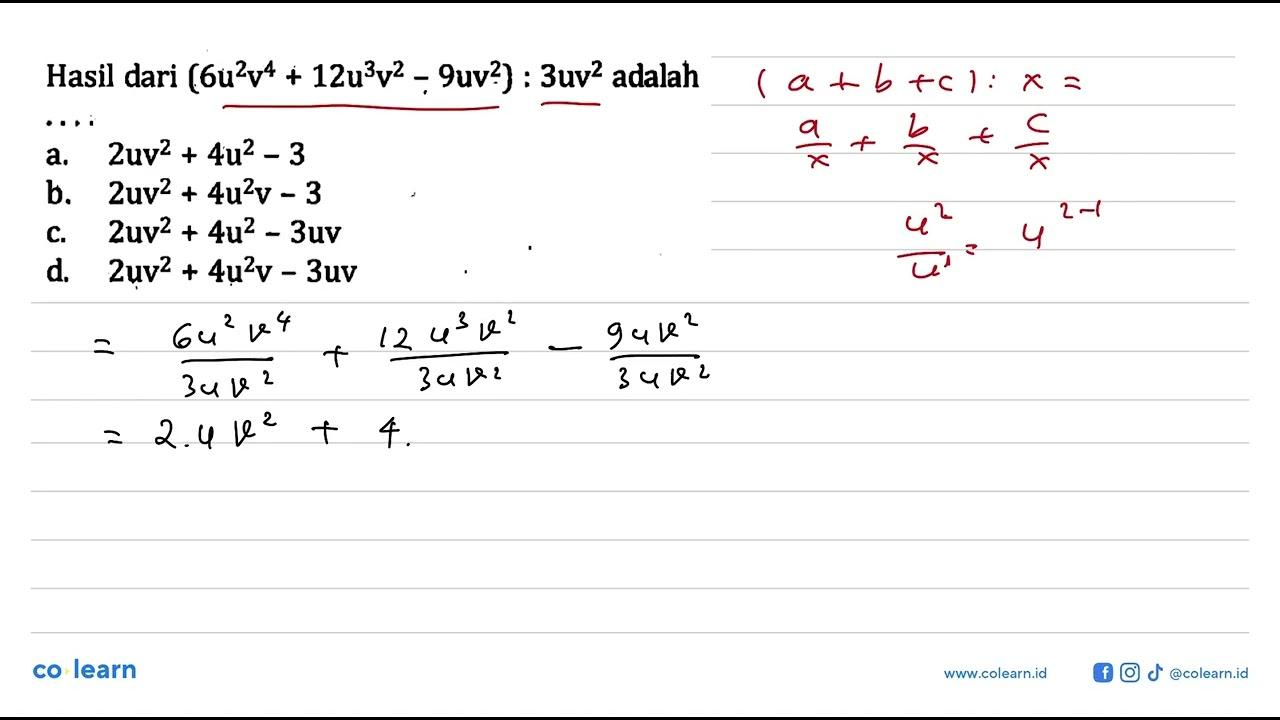 Hasil dari (6u²v⁴ + 12u³v² – 9uv²) : 3uv² adalah
....
a. 2uv² + 4u² – 3
b. 2uv² + 4u²v – 3
c. 2uv² + 4u² – 3uv
d. 2uv² + 4u²v – 3uv
(a + b + c) : x =
a/x + b/x + c/x
u²/u¹ = u²⁻¹
= 6u²v⁴/3uv² + 12u³v²/3uv² – 9uv²/3uv²
= 2.uv² + 4.
co learn
www.colearn.id
@colearn.id